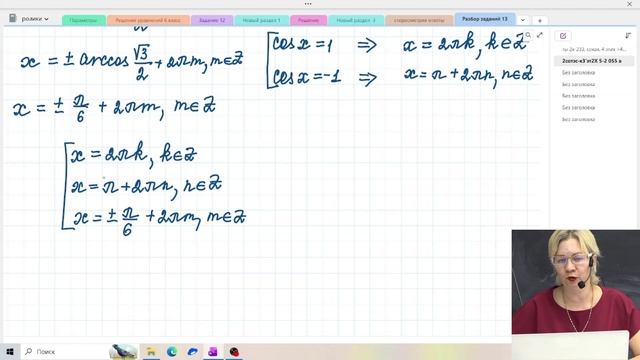 ролики
Параметры
Решение уравнений 6 класс
Задание 12
Новый раздел 1
Решение
Новый раздел 3
стереометрия ответы
Разбор заданий 13
x = ± arccos √3/2 + 2πm, m∈Z
x = ± π/6 + 2πm, m∈Z
cos x = 1 ⇒ x = 2πk, k∈Z
cos x = -1 ⇒ x = π + 2πn, n∈Z
x = 2πk, k∈Z
x = π + 2πn, n∈Z
x = ± π/6 + 2πm, m∈Z
Без заголовка
Без заголовка
Без заголовка
Без заголовка
Без заголовка
Поиск